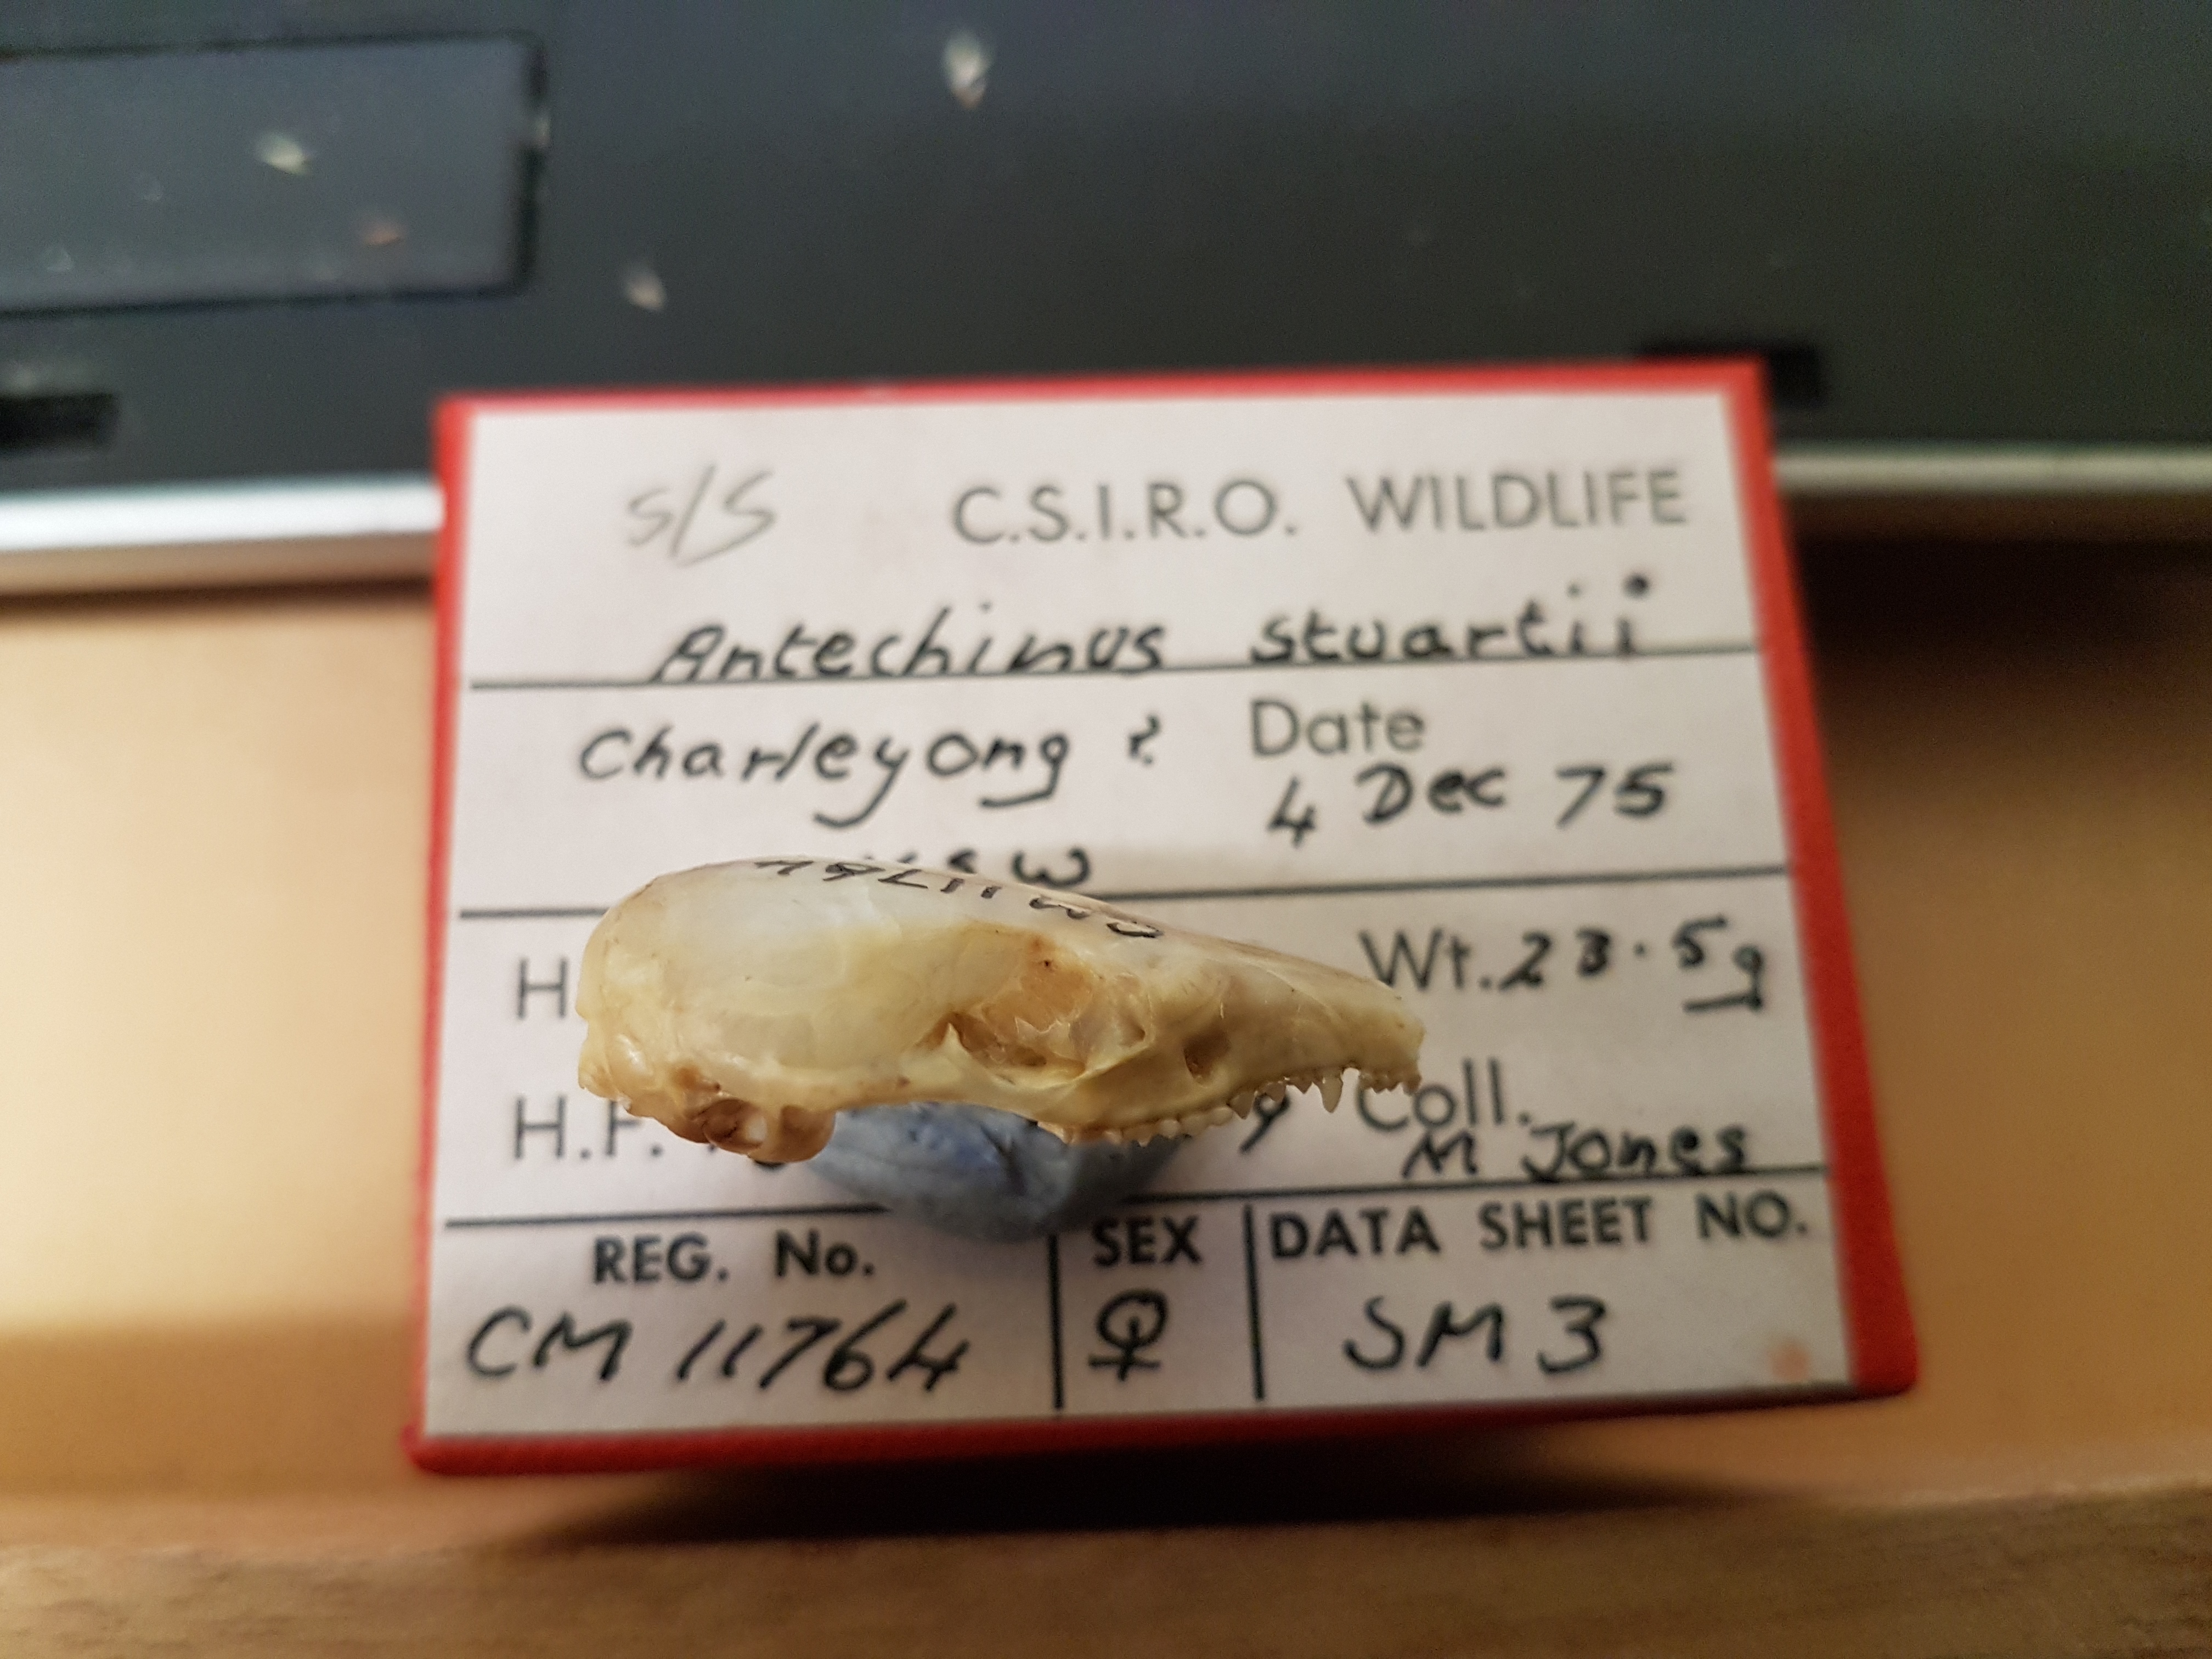 S/S C.S.I.R.O. WILDLIFE
Antechinus stuartii
Charleyong ? Date
4 Dec 75
CM 11764
H Wt. 23.5g
H.F. Coll.
M Jones
REG. No. SEX DATA SHEET NO.
CM 11764 ♀ SM 3